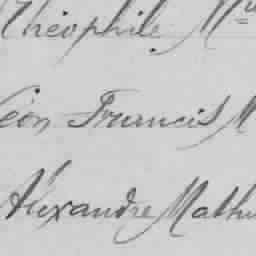 Théophile M
Léon Francis M
Alexandre Mathu